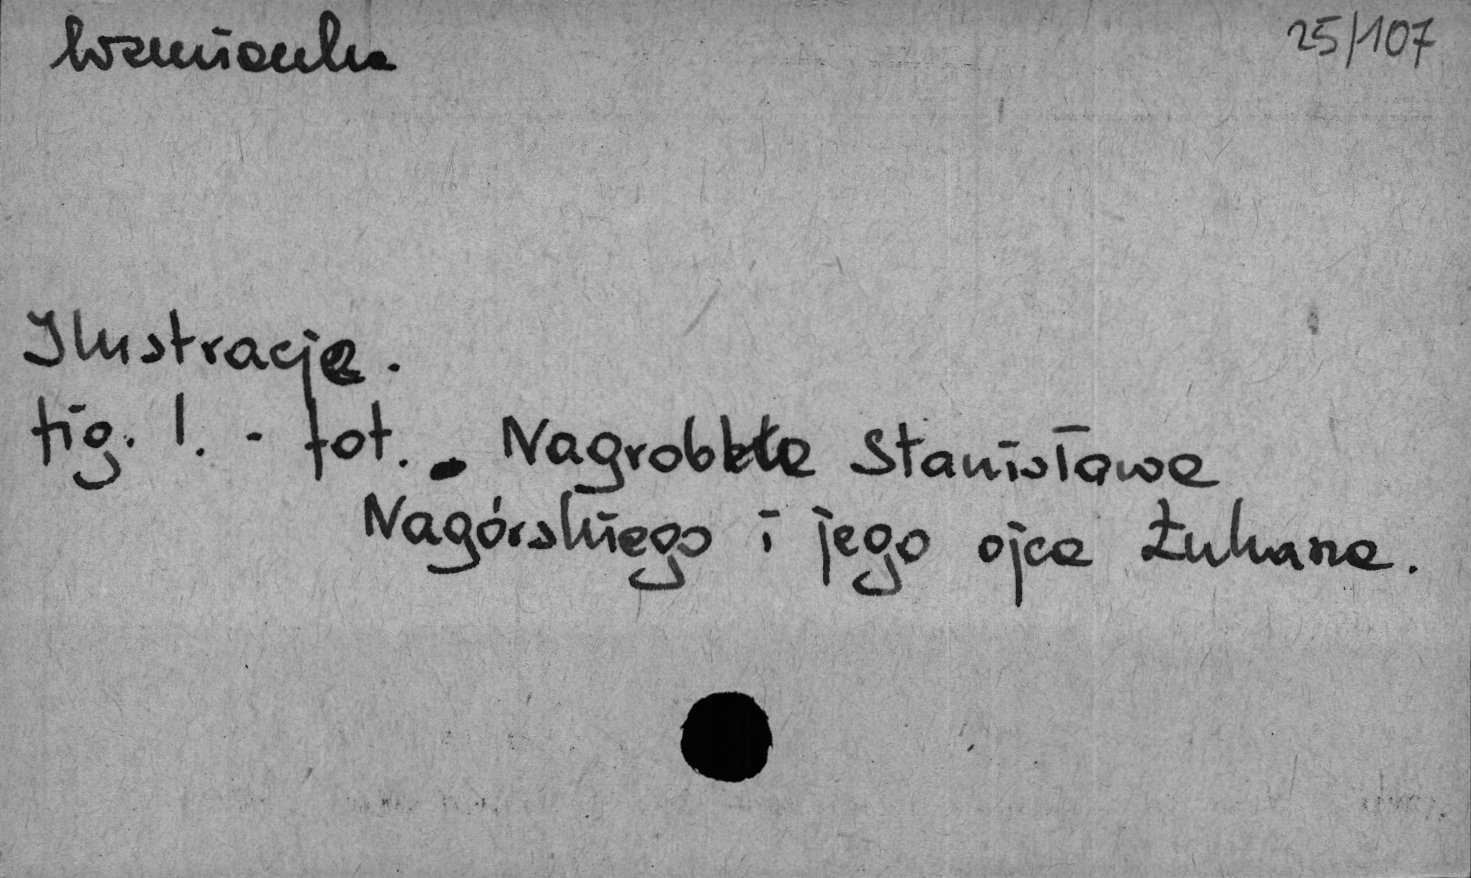 wzmianka
25/107
Ilustracje.
fig. 1. - fot. Nagrobki Stanisława
Nagórskiego i jego ojca Łukasza.